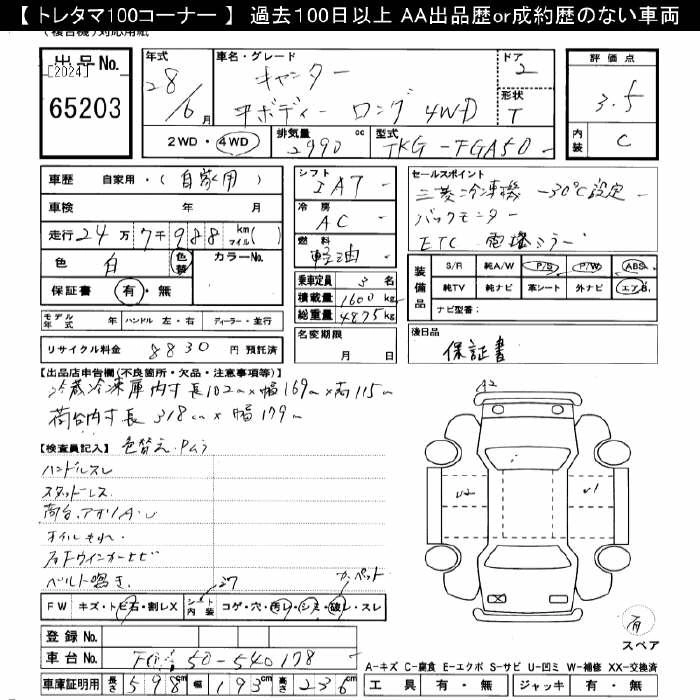 【 トレタマ100コーナー 】 過去100日以上 AA出品歴or成約歴のない車両
出品No.
[2024]
65203
年式 28 / 6 月
車名・グレード キャンター
平ボディー ロング 4WD
ドア 2
形状 T
評価点 3.5
内装 C
2WD・4WD
排気量 2990 cc
型式 TKG-FGA50
車歴 自家用・(自家用)
車検 年 月
走行 24万7千988 km マイル( )
色 白 色替
カラーNo.
保証書 有・無
シフト IAT
冷房 AC
燃料 軽油
乗車定員 3名
積載量 1600 kg
総重量 4875 kg
名変期限 月 日
セールスポイント
三菱冷凍機 -30℃設定
バックモニター
ETC 電格ミラー
装備品 S/R 純A/W P/S P/W ABS
純TV 純ナビ 革シート 外ナビ エアB
ナビ型番:
モデル年式 年 ハンドル 左・右 ディーラー・並行
リサイクル料金 8830 円 預託済
後日品
保証書
【出品店申告欄(不良箇所・欠品・注意事項等)】
冷蔵冷凍庫内寸 長102cm×幅169cm×高115cm
荷台内寸 長318cm×幅179cm
【検査員記入】 色替え、PGラ
ハンドルスレ
スタッドレス
荷台、アオリA・U
オイルもれ
ベルト鳴き
FW キズ・トビ石・割レX
シート内装 コゲ・穴・汚レ・シミ・破レ・スレ
カーペット
A2
U2
U1
有
スペア
登録No.
車台No. FGA50-540178
車庫証明用 長さ 598cm 幅 193cm 高さ 236cm
A-キズ C-腐食 E-エクボ S-サビ U-凹ミ W-補修 XX-交換済
工具 有・無 ジャッキ 有・無